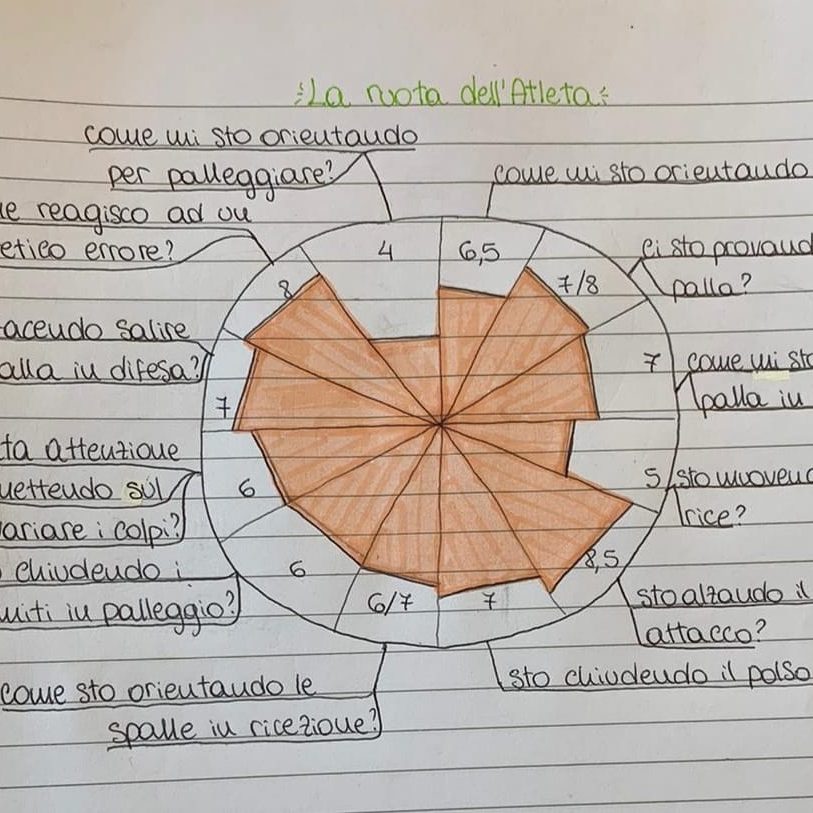 La ruota dell'Atleta
come mi sto orientando
per palleggiare?
come mi sto orientando
e reagisco ad un
etico errore?
ci sto provand
palla?
acendo salire
alla in difesa?
come mi sto
palla in
ta attenzione
mettendo sul
ariare i colpi?
sto muovend
rice?
chiudendo i
miti in palleggio?
sto alzando il
attacco?
sto chiudendo il polso
come sto orientando le
spalle in ricezione?
4
6,5
7/8
7
5
8,5
7
6/7
6
6
7
8